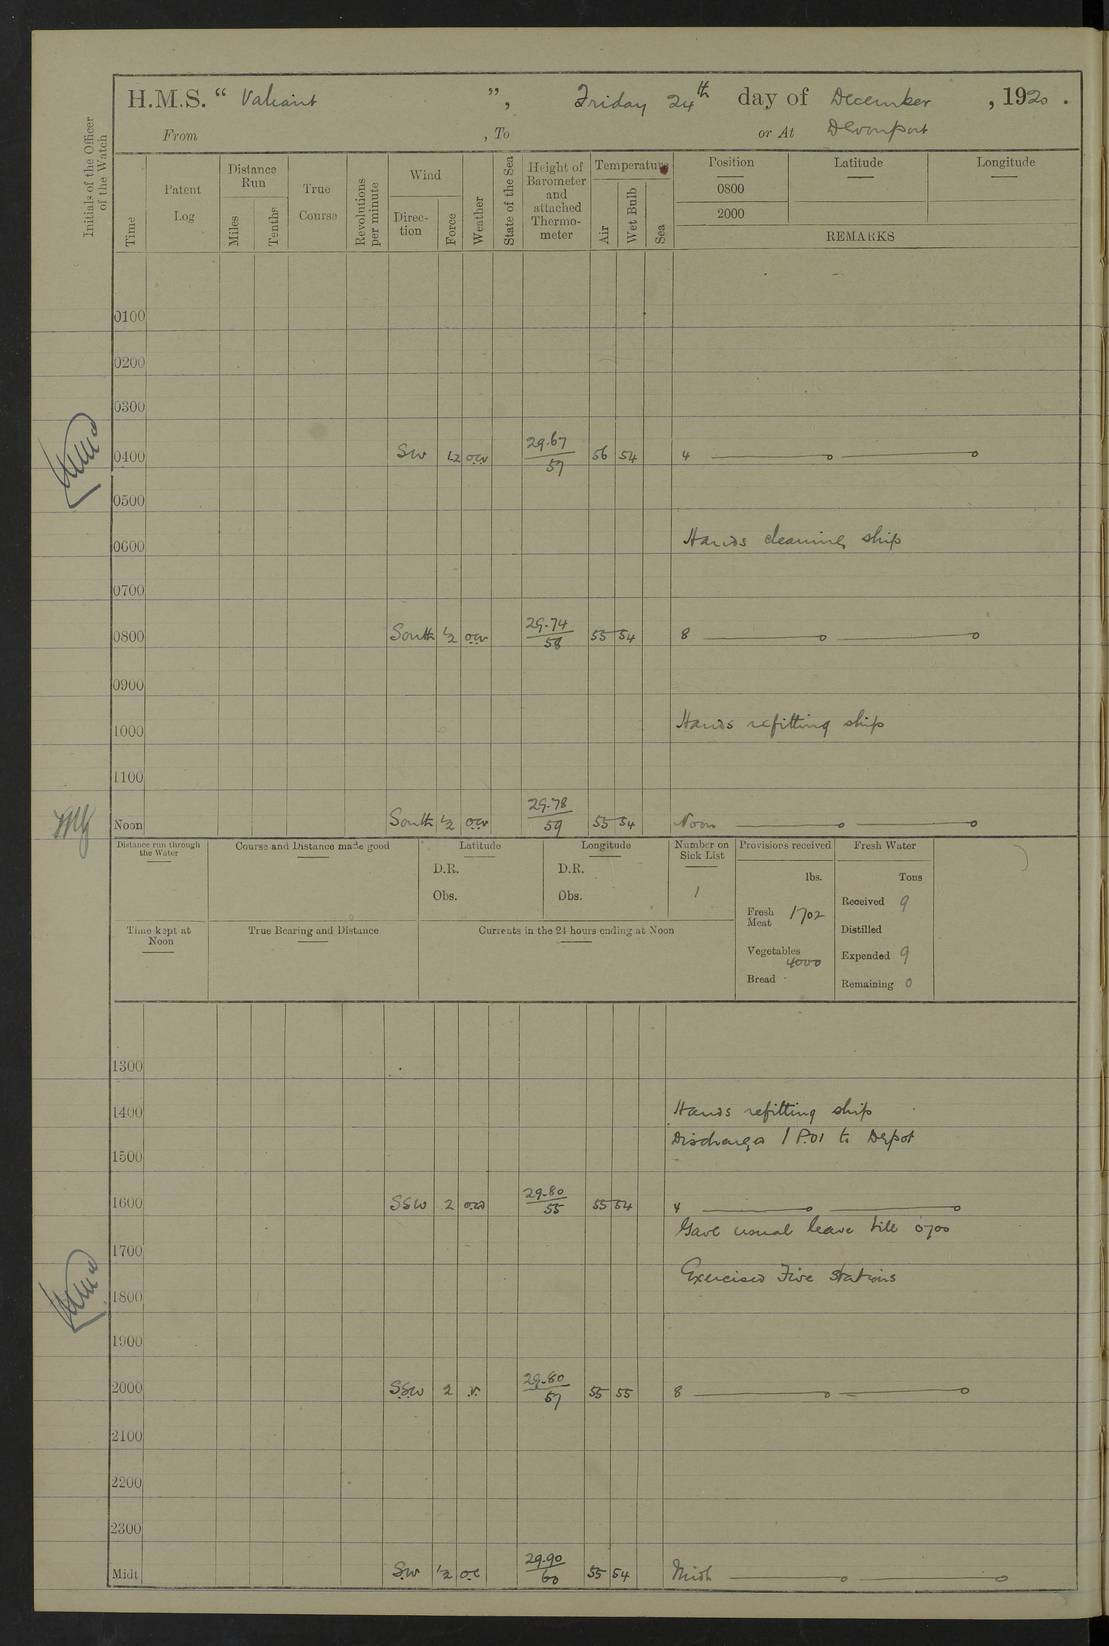 H.M.S. “ Valiant ”, Friday 24th day of December , 1920 .
From , To or At Devonport
Initials of the Officer of the Watch
Time
Patent Log
Distance Run
Miles
Tenths
True Course
Revolutions per minute
Wind
Direction
Force
Weather
State of the Sea
Height of Barometer and attached Thermometer
Temperature
Air
Wet Bulb
Sea
Position Latitude Longitude
0800
2000
REMARKS
0100
0200
0300
0400 SW 1/2 29.67/57 56 54 4
0500
0600 Hands cleaning ship
0700
0800 South 1/2 29.74/58 55 54 8
0900
1000 Hands refitting ship
1100
Noon South 1/2 29.78/59 55 54 Noon
Distance run through the Water
Course and Distance made good
Latitude
D.R.
Obs.
Longitude
D.R.
Obs.
Number on Sick List
1
Provisions received
lbs.
Fresh Meat 1702
Vegetables 4000
Bread
Fresh Water
Tons
Received 9
Distilled
Expended 9
Remaining 0
Time kept at Noon
True Bearing and Distance
Currents in the 24 hours ending at Noon
1300
1400 Hands refitting ship
Discharged 1 P.O. to Depot
1500
1600 SSW 2 29.80/55 55 54 4
Gave usual leave till 0700
1700
Exercised Fire Stations
1800
1900
2000 SSW 2 r. 29.80/57 55 55 8
2100
2200
2300
Midt SW 1/2 oc 29.90/60 55 54 Midt